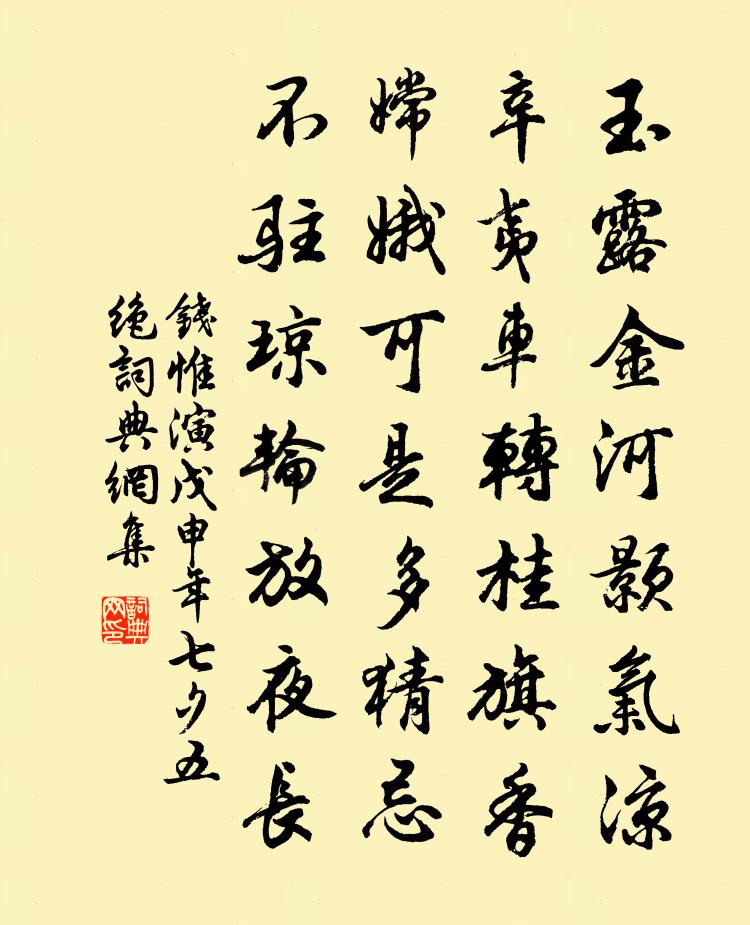 玉露金河顥氣涼
辛夷車轉桂旗香
嫦娥可是多猜忌
不駐瓊輪放夜長
錢惟演戊申年七夕五
絕詞典網集
詞典网印